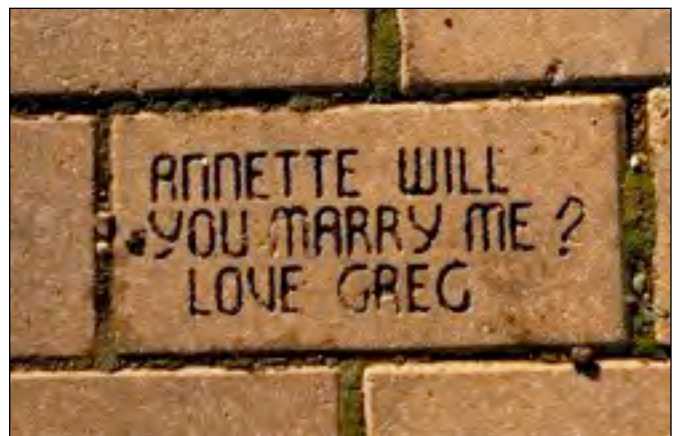 ANNETTE WILL
YOU MARRY ME?
LOVE GREG